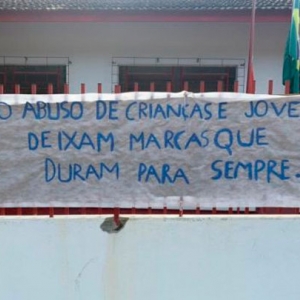 O ABUSO DE CRIANÇAS E JOVE
DEIXAM MARCAS QUE
DURAM PARA SEMPRE.